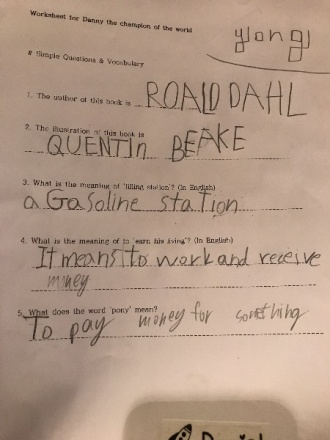 Worksheet for Danny the champion of the world
yongj
# Simple Questions & Vocabulary
1. The author of this book is ROALD DAHL
2. The illustration of this book is
QUENTIn BEAKE
3. What is the meaning of 'filling station'? (In English)
a Gasoline station
4. What is the meaning of to 'earn his living'? (In English)
It means to work and receive
money
5. What does the word 'pony' mean?
To pay money for something